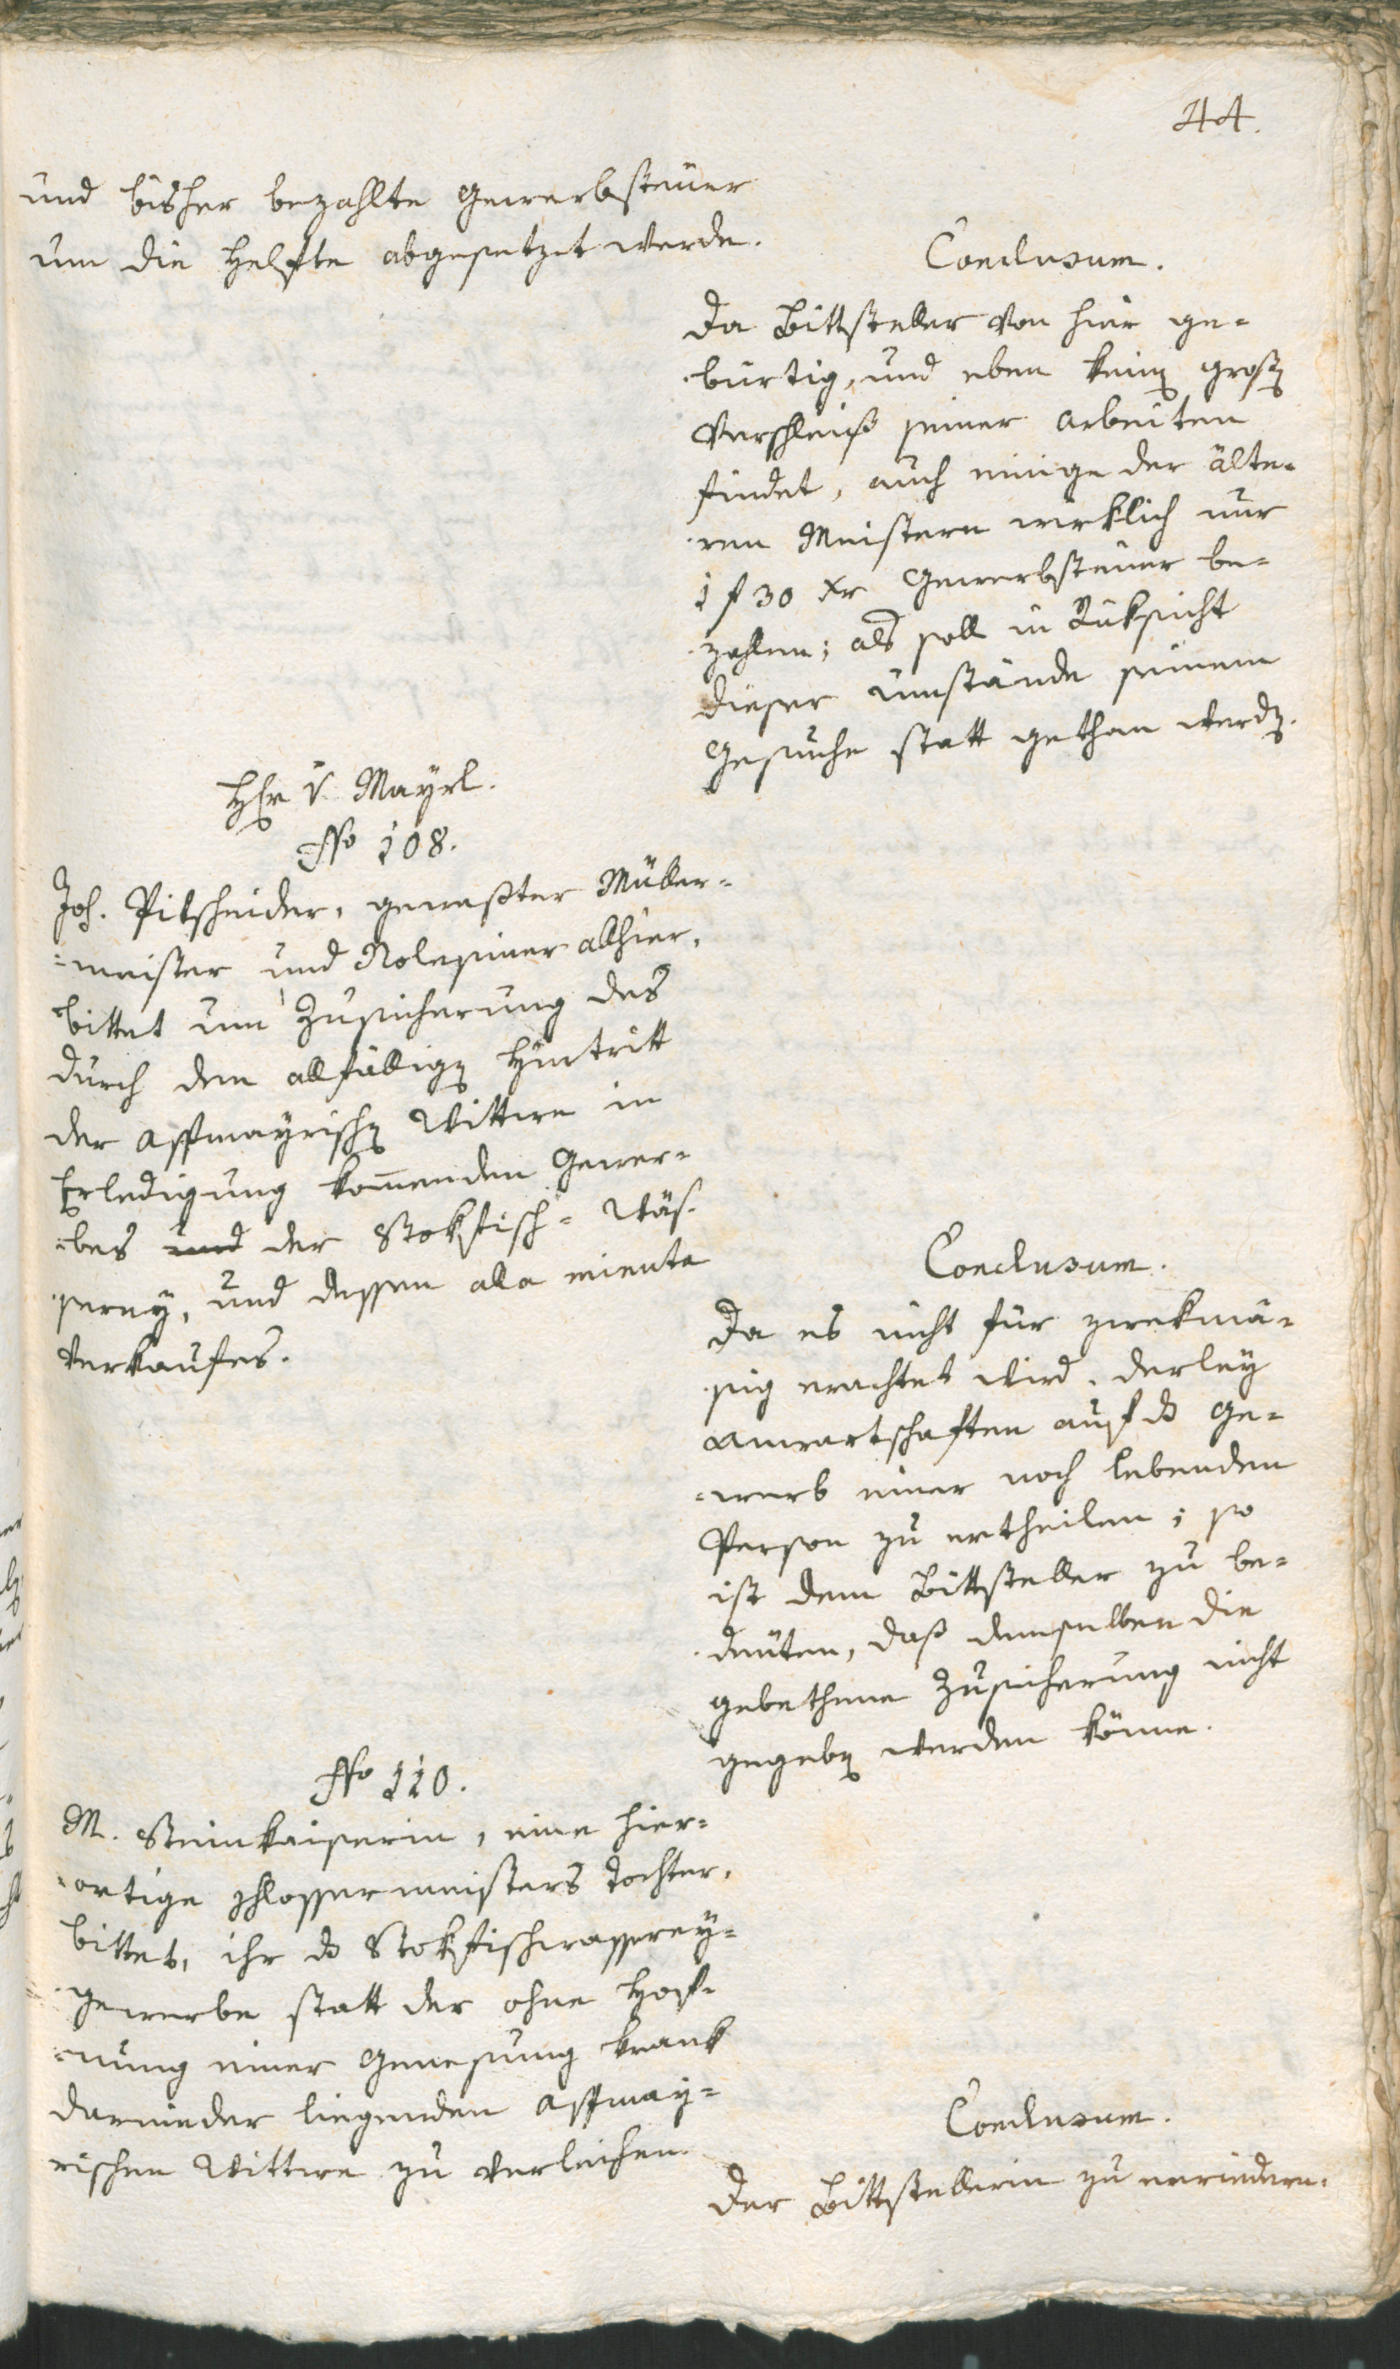 44.
und bisher bezahlte Gewerbsteuer
um die Helfte abgesetzet werde.
Conclusum.
Da Bittsteller von hier ge-
bürtig, und eben keinen großen
Verschleiß seiner Arbeiten
findet, auch einige der älte-
ren Meistern wirklich nur
1 f 30 xr Gewerbsteuer be-
zahlen; als soll in Rüksicht
dieser Umstände seinem
Gesuche statt gethan werden.
Hr v. Mayrl.
No 108.
Joh. Pitscheider, gewester Müller-
=meister und allhier,
bittet um Zusicherung des
durch den allfälligen Hintritt
der Assmayrischen Wittwe in
Erledigung kommenden Gewer-
bes und der Stokfisch- Wäs-
serey, und dessen alla minuta
Verkaufes.
Conclusum.
Da es nicht für zwekmä-
sig erachtet wird, derley
Anwartschaften auf das Ge-
=werb einer noch lebenden
Person zu ertheilen; so
ist dem Bittsteller zu be-
deuten, daß demselben die
gebethene Zusicherung nicht
gegeben werden könne.
No 110.
M. Steinkaiserin, eine hier-
=ortige Schlossermeisters Tochter,
bittet, ihr das Stokfischwasserey-
gewerbe statt der ohne Hof-
=nung einer Genesung krank
darnieder liegenden Assmay-
rischen Wittwe zu verleihen.
Conclusum.
Der Bittstellerin zu erwiedern,